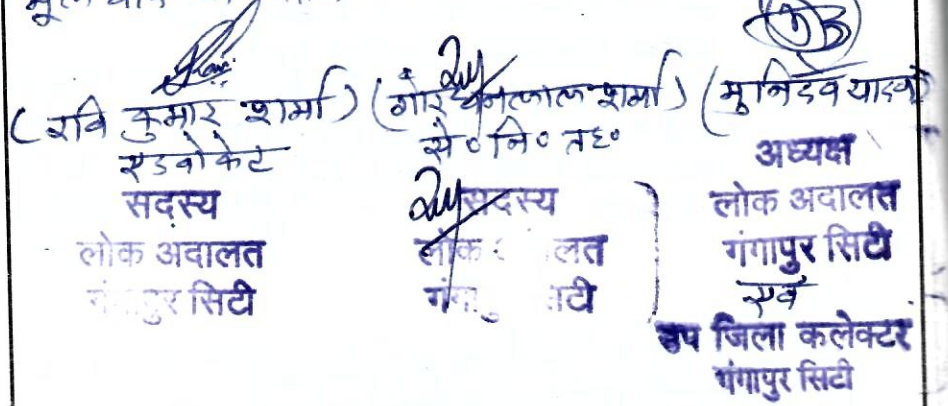 (रवि कुमार शर्मा)
एडवोकेट
सदस्य
लोक अदालत
गंगापुर सिटी
शर्मा)
से० नि० तह०
सदस्य
लोक अदालत
गंगापुर सिटी
(मुनिदेव यादव)
अध्यक्ष
लोक अदालत
गंगापुर सिटी
एवं
उप जिला कलेक्टर
गंगापुर सिटी